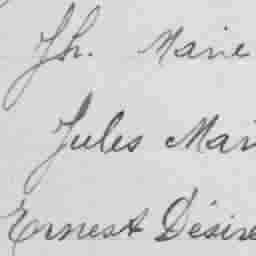 Jh. Marie
Jules Mari
Ernest Désiré